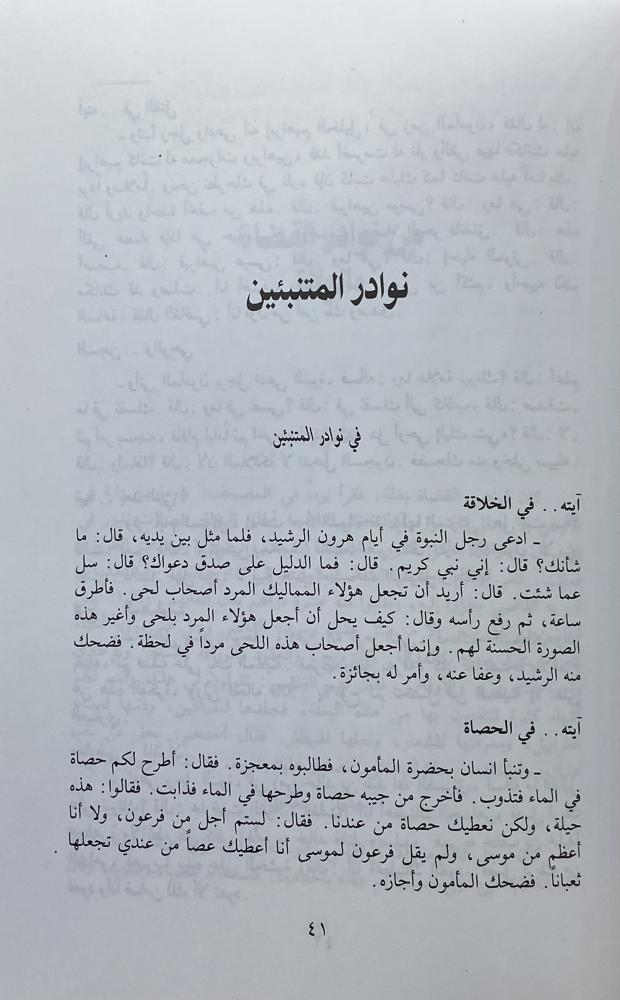 نوادر المتنبئين
في نوادر المتنبئين
آيته.. في الخلاقة
ـ ادعى رجل النبوة في أيام هرون الرشيد، فلما مثل بين يديه، قال: ما
شأنك؟ قال: إني نبي كريم. قال: فما الدليل على صدق دعواك؟ قال: سل
عما شئت. قال: أريد أن تجعل هؤلاء المماليك المرد أصحاب لحى. فأطرق
ساعة، ثم رفع رأسه وقال: كيف يحل أن أجعل هؤلاء المرد بلحى وأغير هذه
الصورة الحسنة لهم. وإنما أجعل أصحاب هذه اللحى مرداً في لحظة. فضحك
منه الرشيد، وعفا عنه، وأمر له بجائزة.
آيته.. في الحصاة
ـ وتنبأ انسان بحضرة المأمون، فطالبوه بمعجزة. فقال: أطرح لكم حصاة
في الماء فتذوب. فأخرج من جيبه حصاة وطرحها في الماء فذابت. فقالوا: هذه
حيلة، ولكن نعطيك حصاة من عندنا. فقال: لستم أجل من فرعون، ولا أنا
أعظم من موسى، ولم يقل فرعون لموسى أنا أعطيك عصاً من عندي تجعلها
ثعباناً. فضحك المأمون وأجازه.
٤١